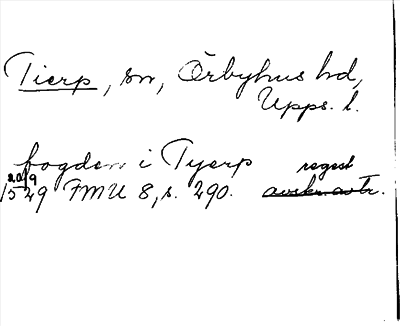 Tierp, sn, Örbyhus hd,
Upps. l.
fogden i Tyerp
20/9 regest
1529 FMU 8, s. 290. avskr. avtr.